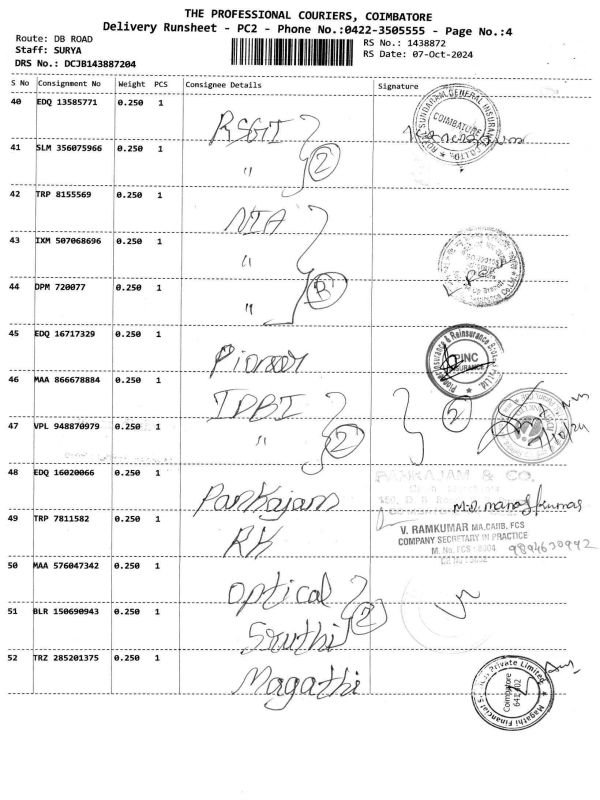 THE PROFESSIONAL COURIERS, COIMBATORE
Delivery Runsheet - PC2 - Phone No.:0422-3505555 - Page No.:4
Route: DB ROAD
RS No.: 1438872
Staff: SURYA
RS Date: 07-Oct-2024
DRS No.: DCJB143887204
S No Consignment No Weight PCS Consignee Details Signature
40 EDQ 13585771 0.250 1 RSGI
COIMBATORE
41 SLM 356075966 0.250 1 " 2
42 TRP 8155569 0.250 1 NIA
43 IXM 507068696 0.250 1 "
44 DPM 720077 0.250 1 " 3
45 EDQ 16717329 0.250 1 Pioneer
Pioneer Insurance & Reinsurance Brokers Pvt Ltd.
PINC
INSURANCE
46 MAA 866678884 0.250 1 IDBI
47 VPL 948870979 0.250 1 " 2
48 EDQ 16020066 0.250 1 Pankajam
PANKAJAM & CO.
M.D. manoj kumar
49 TRP 7811582 0.250 1 RK
V. RAMKUMAR MA,CAIIB, FCS
COMPANY SECRETARY IN PRACTICE
M. No. FCS : 8304
9894630992
50 MAA 576047342 0.250 1 optical
51 BLR 150690943 0.250 1 Sruthi 2
52 TRZ 285201375 0.250 1 Magathi
Private Limited
Magathi Financial
Coimbatore